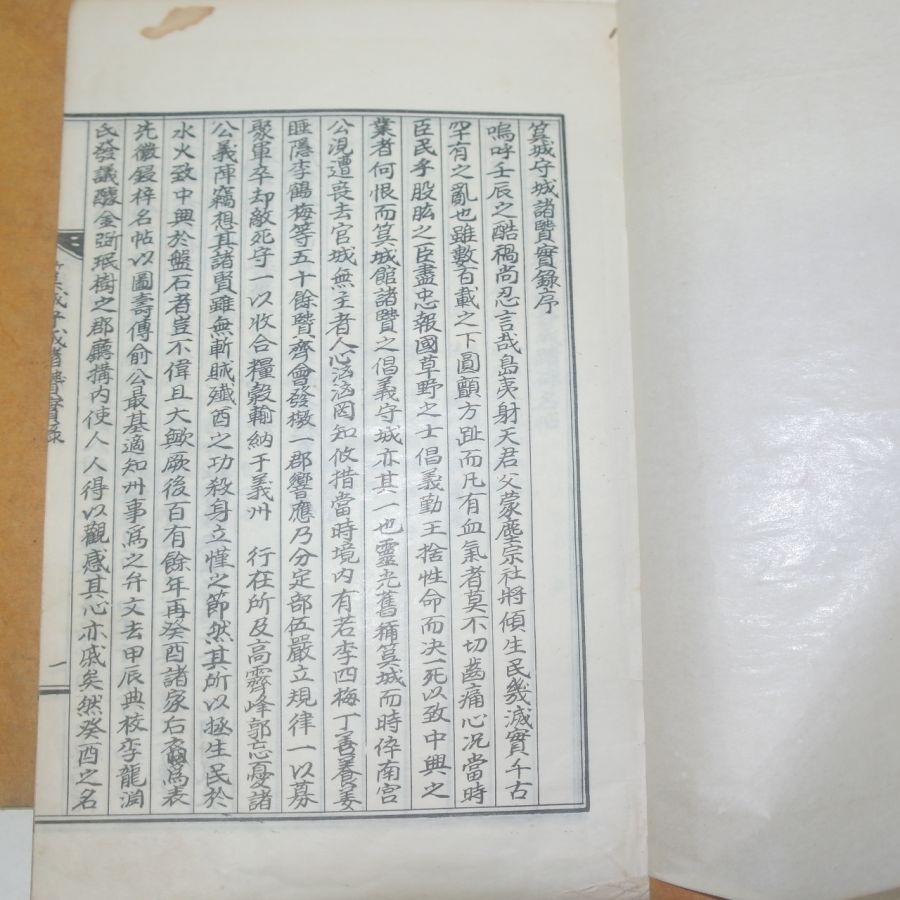 筽城守城諸賢實錄序
嗚呼壬辰之酷禍尚忍言哉島夷射天君父蒙塵宗社將傾生民幾滅實千古
罕有之亂也雖數百載之下圓顱方趾而凡有血氣者莫不切齒痛心况當時
臣民乎股肱之臣盡忠報國草野之士倡義勤王捨性命而决一死以致中興之
業者何恨而筽城館諸賢之倡義守城亦其一也靈光舊稱筽城而時倅南宮
公涀遭喪去官城無主者人心汹汹罔知攸措當時境内有若李四梅丁善養姜
睡隱李鶴梅等五十餘賢齊會發檄一郡響應乃分定部伍嚴立規律一以募
聚軍卒却敵死守一以收合糧穀輸納于義州 行在所及高霽峰郭忘憂諸
公義陣竊想其諸賢雖無斬馘殲酋之功殺身立慬之節然其所以拯生民於
水火致中興於盤石者豈不偉且大歟厥後百有餘年再癸酉諸家右裔爲表
先徽鋟梓名帖以圖壽傳俞公最基適知州事爲之弁文去甲辰典校李龍潤
氏發議醵金斲珉樹之郡廳搆内使人人得以觀感其心亦戚矣然癸酉之名
筽城守城諸賢實錄
一